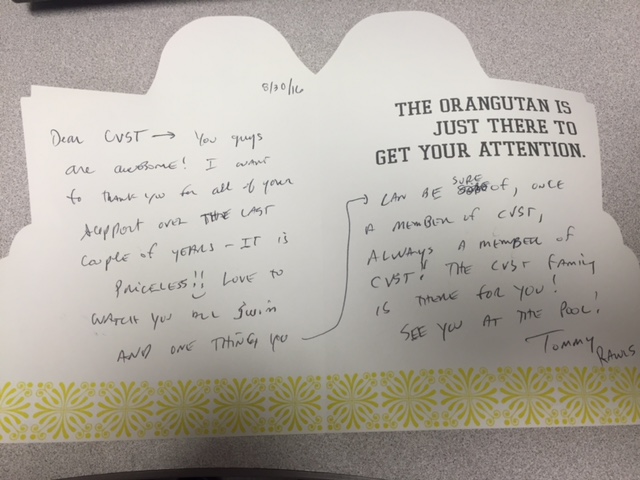 8/30/16
Dear CVST → You guys
are awesome! I want
to thank you for all of your
support over THE LAST
couple of YEARS - IT is
PRICELESS!! LOVE TO
WATCH YOU ALL SWIM
AND ONE THING, YOU
THE ORANGUTAN IS
JUST THERE TO
GET YOUR ATTENTION.
CAN BE SURE of, ONCE
A MEMBER of CVST,
ALWAYS A MEMBER of
CVST! THE CVST FAMILY
IS THERE FOR YOU!
SEE YOU AT THE POOL!
Tommy